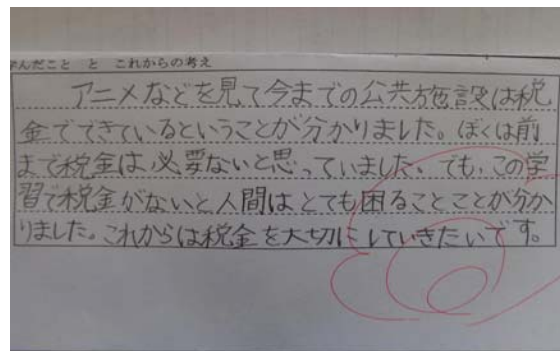 学んだこと と これからの考え
アニメなどを見て今までの公共施設は税
金でできているということが分かりました。ぼくは前
まで税金は必要ないと思っていました。でも、この学
習で税金がないと人間はとても困ることことが分か
りました。これからは税金を大切にしていきたいです。